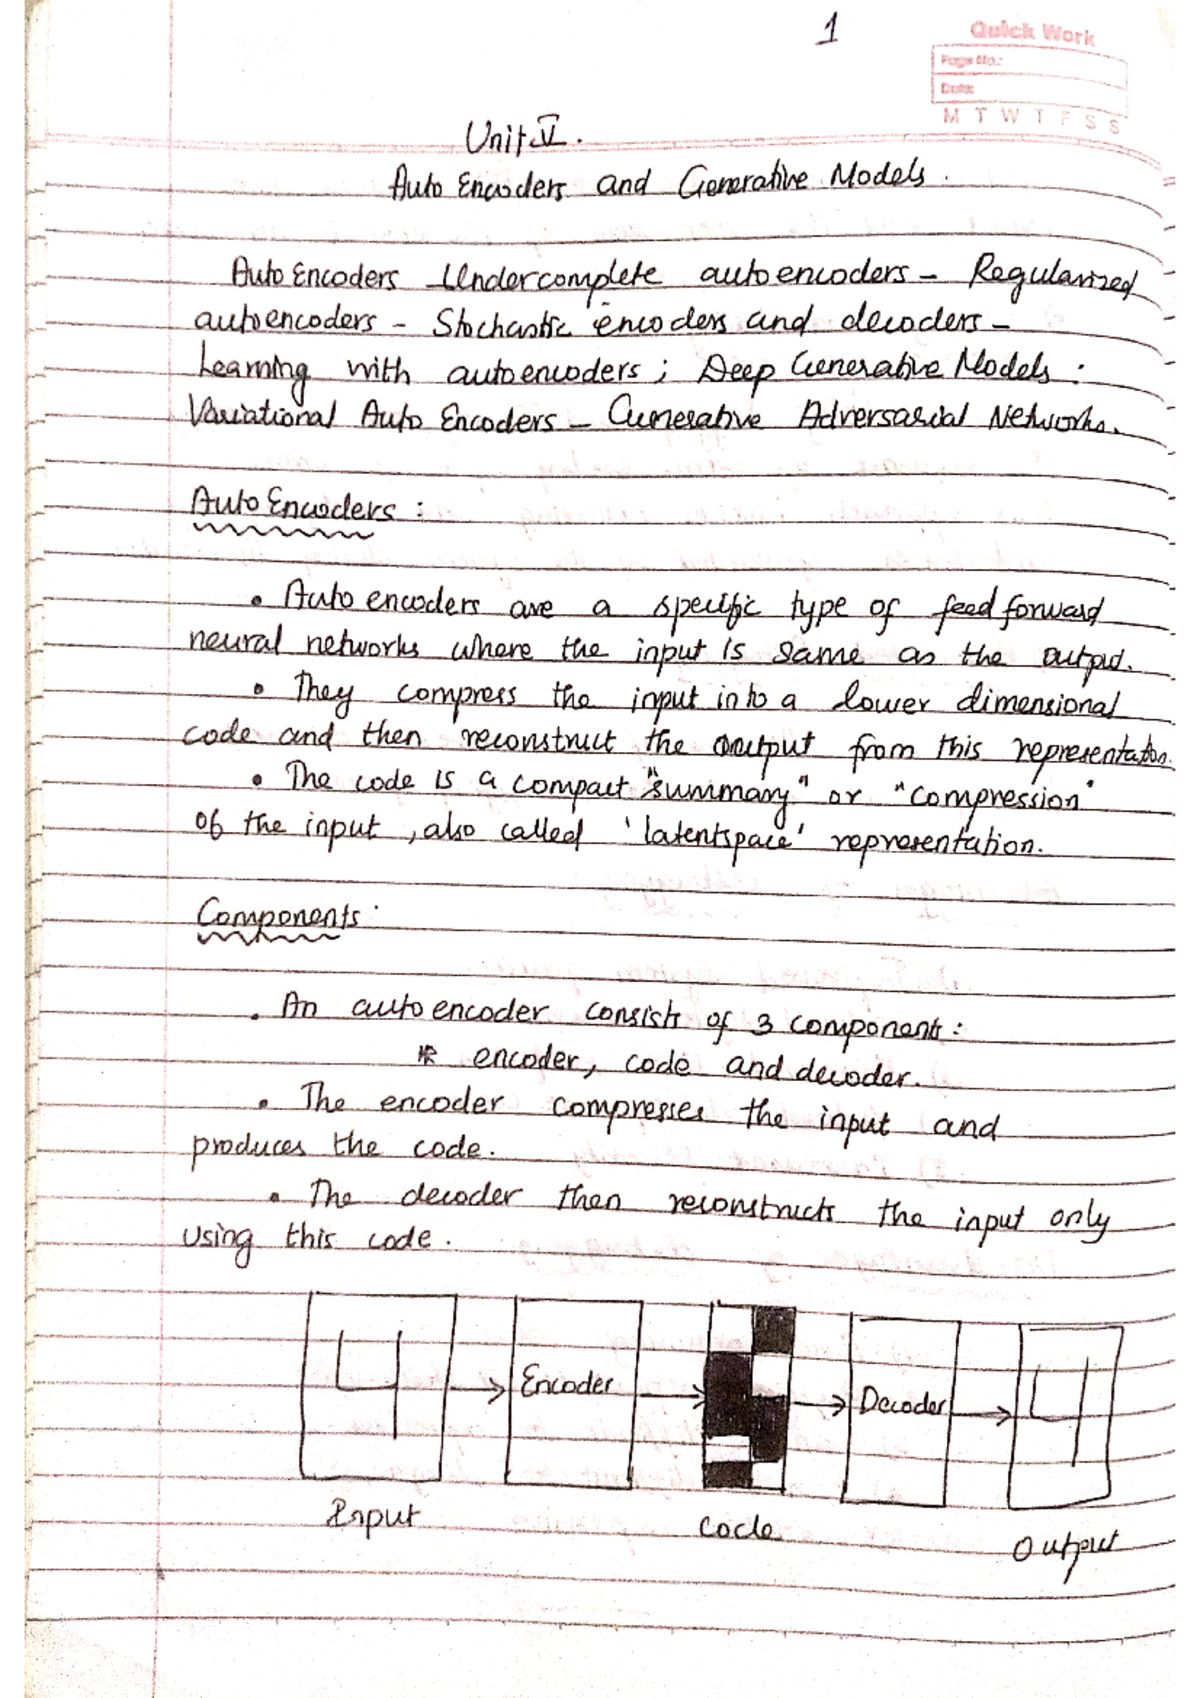 1
Quick Work
Page No.:
Date:
M T W T F S S
Unit V.
Auto Encoders and Generative Models.
Auto Encoders - Undercomplete autoencoders - Regularized
autoencoders - Stochastic encoders and decoders -
Learning with autoencoders; Deep Generative Models:
Variational Auto Encoders - Generative Adversarial Networks.
Auto Encoders:
• Auto encoders are a specific type of feed forward
neural networks where the input is same as the output.
• They compress the input into a lower dimensional
code and then reconstruct the output from this representation.
• The code is a compact "summary" or "compression"
of the input, also called 'latentspace' representation.
Components:
• An auto encoder consists of 3 components:
* encoder, code and decoder.
• The encoder compresses the input and
produces the code.
• The decoder then reconstructs the input only
using this code.
4 Encoder Decoder 4
Input Code Output